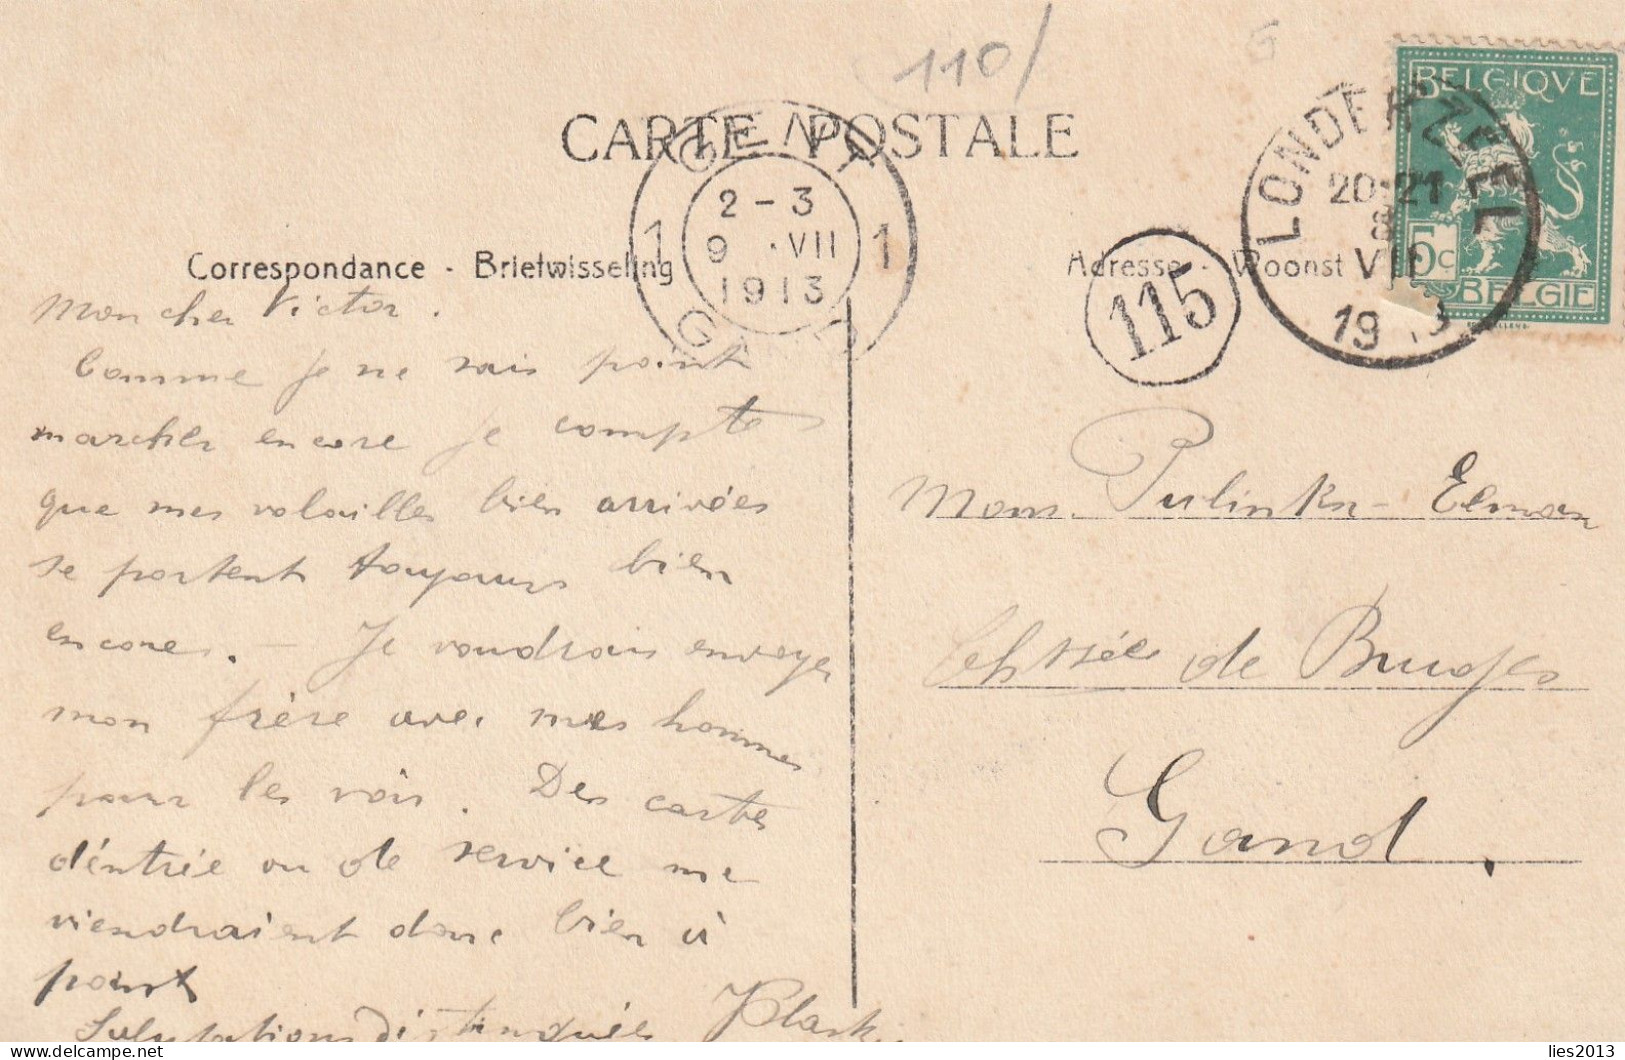 110/
BELGIQVE
5c
BELGIË
LONDERZEEL
20-21
8
VII
1913
CARTE POSTALE
GENT
1 2-3 1
9 VII
1913
GAND
115
Correspondance - Briefwisseling
Adresse - Woonst
Mon cher Victor.
Comme je ne sais point
marcher encore je compte
que mes volailles bien arrivées
se portent toujours bien
encore. - Je voudrais envoyer
mon frère avec mes hommes
pour les voir. Des cartes
d'éntrée ou de service me
viendraient donc bien à
point
Salutations distinguées
Mons. Pulinkx-Elman
Chssée de Bruges
Gand.
lies2013